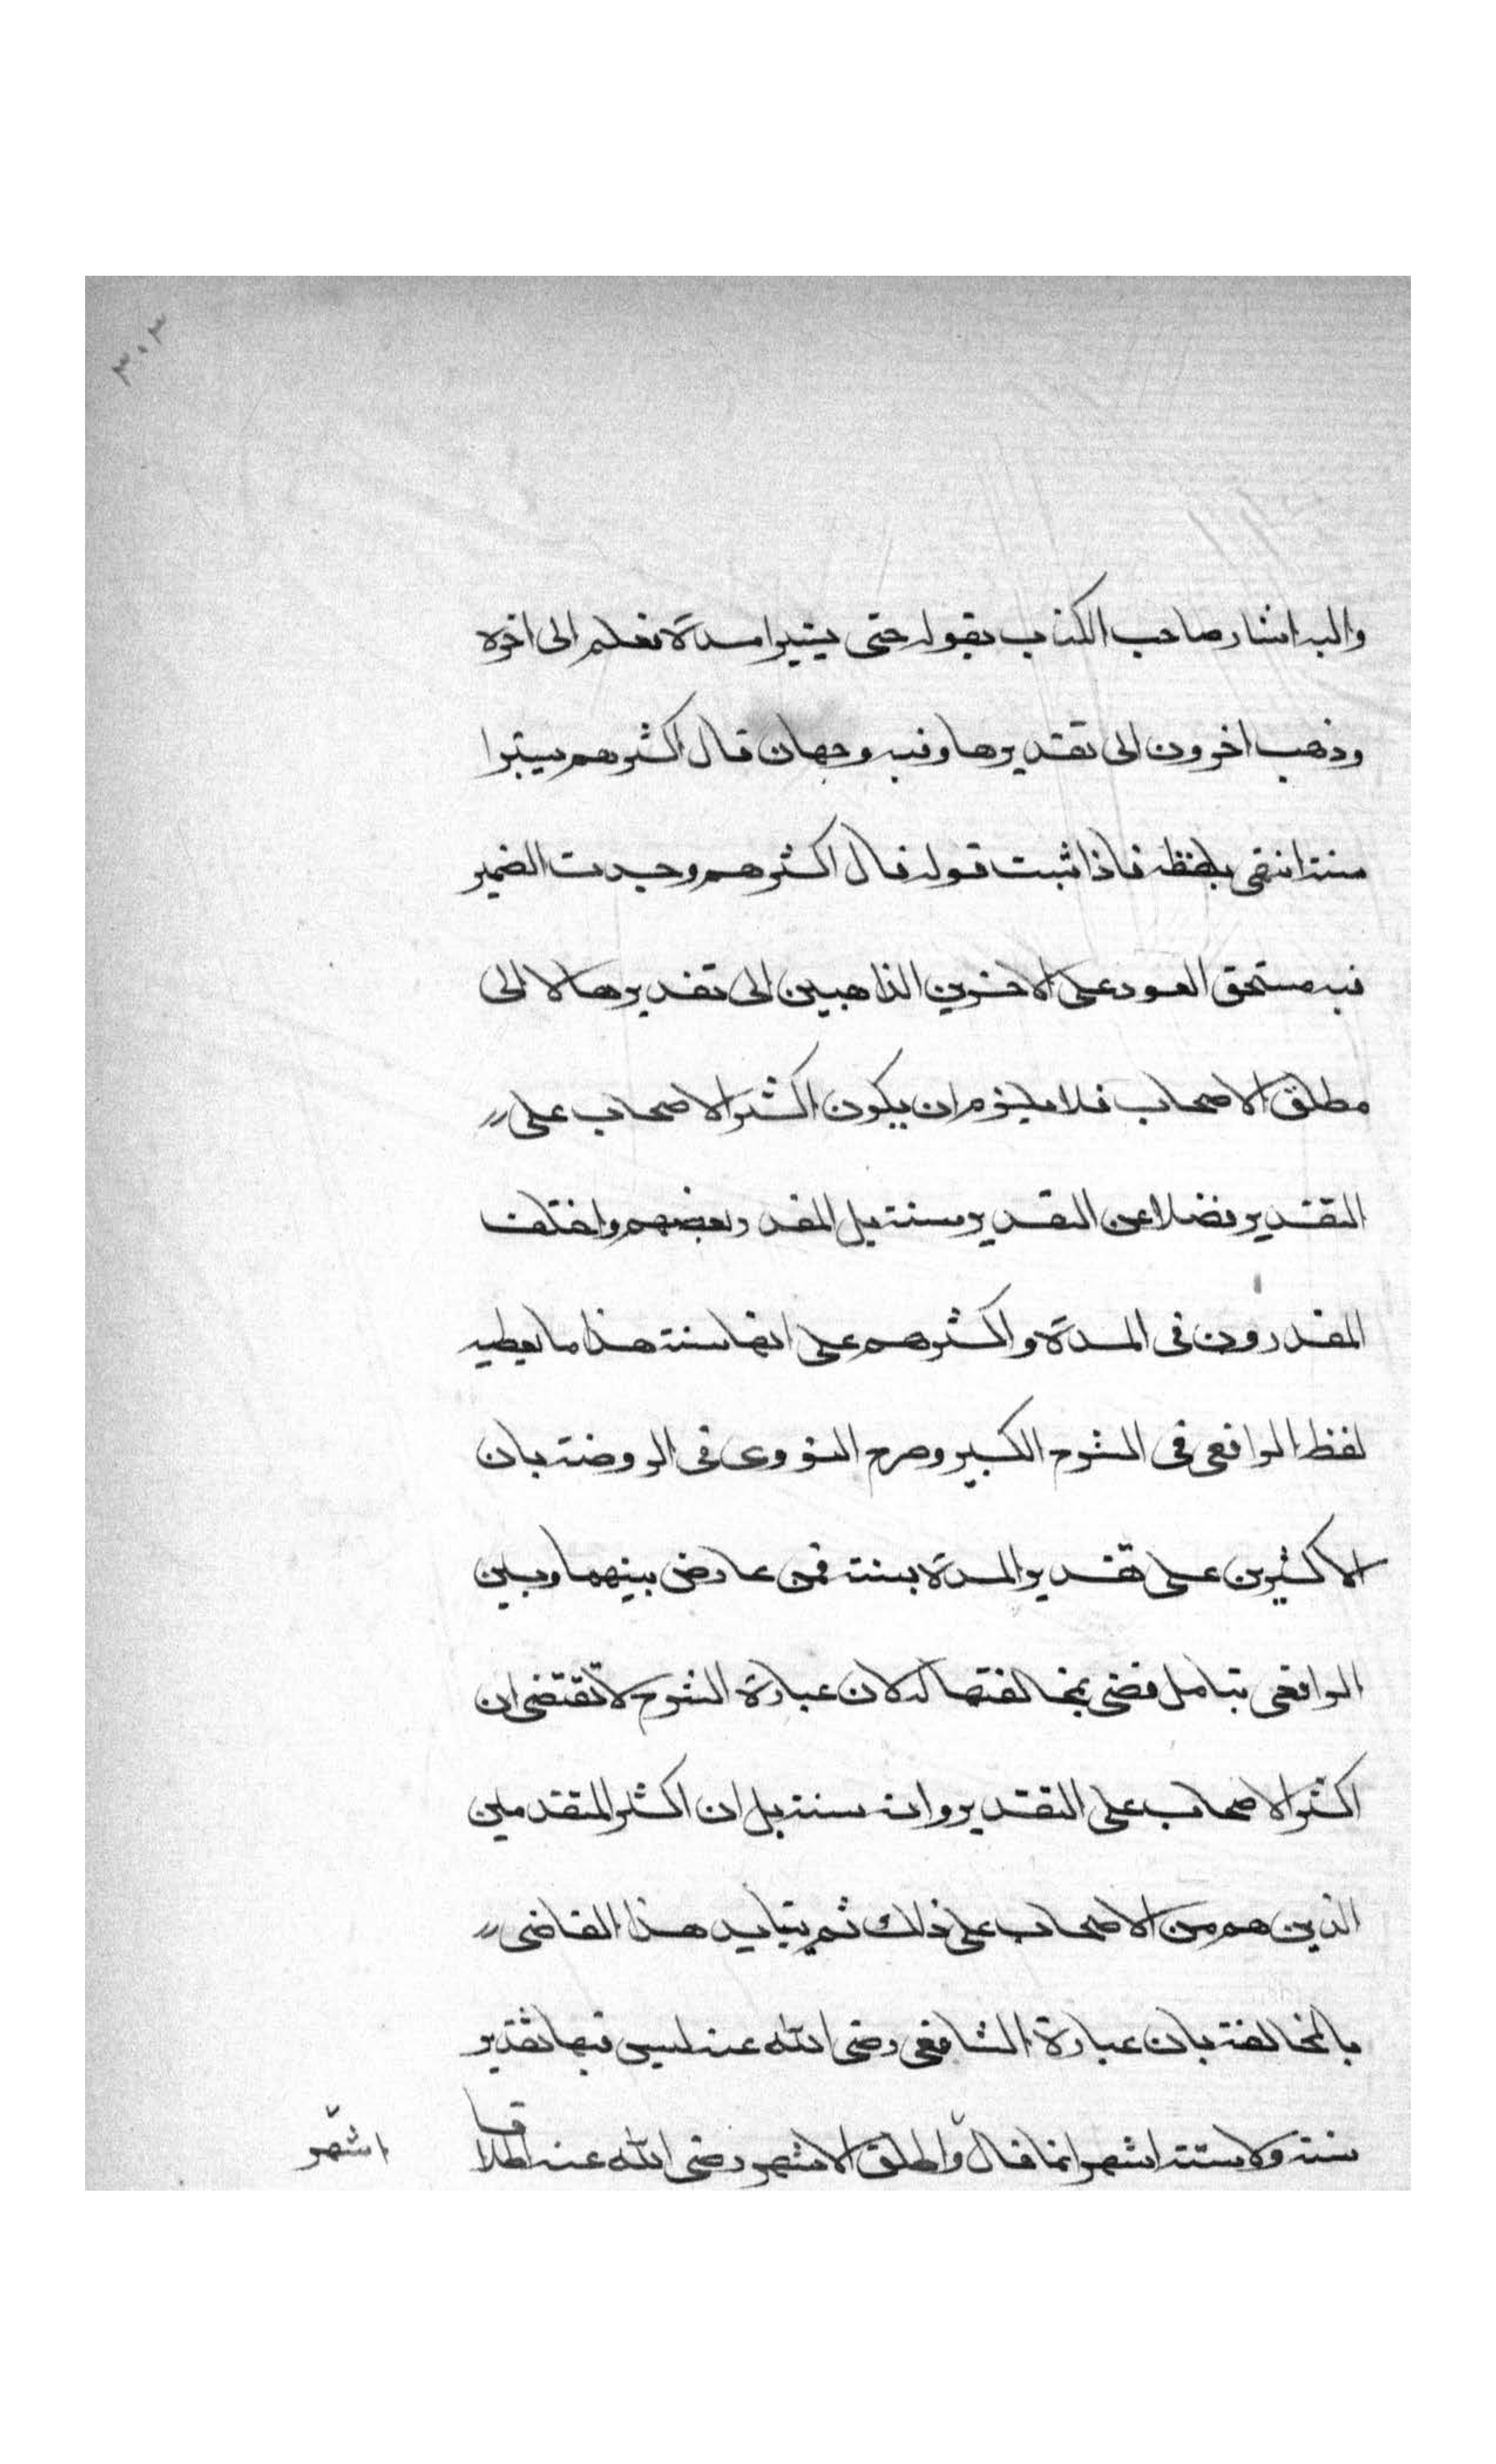 ٣٠٣
واليه اشار صاحب الكتاب بقوله حتى يستبرا مدة فعلم الى اخره
وذهب اخرون الى تقديرها وفيه وجهان قال اكثرهم يستبرا
سنة انتهى بلفظه فاذا ثبت قوله قال اكثرهم وجدت الضمير
فيه مستحق العود على الاخرين الذاهبين الى تقديرها لا الى
مطلق الاصحاب فلا يلزم ان يكون اكثر الاصحاب على
التقدير فضلا عن التقدير بسنة بل المقدر بعضهم واختلف
المقدرون في المدة واكثرهم على انها سنة هذا ما يعطيه
لفظ الرافعي في الشرح الكبير وصرح النووي في الروضة بان
الاكثرين على تقدير المدة بسنة فمن عارض بينهما وبين
الرافعي بتامل قضى بمخالفتها له لان عبارة الشرح لا تقتضي ان
اكثر الاصحاب على التقدير وانه سنة بل ان اكثر المتقدمين
الذين هم من الاصحاب على ذلك ثم يتايد هذا القاضي
بالمخالفة بان عبارة الشافعي رضي الله عنه ليس فيها تقدير
سنة ولا ستة اشهر انما قال واطلق الاشهر رضي الله عنه اطلاقا
اشهر